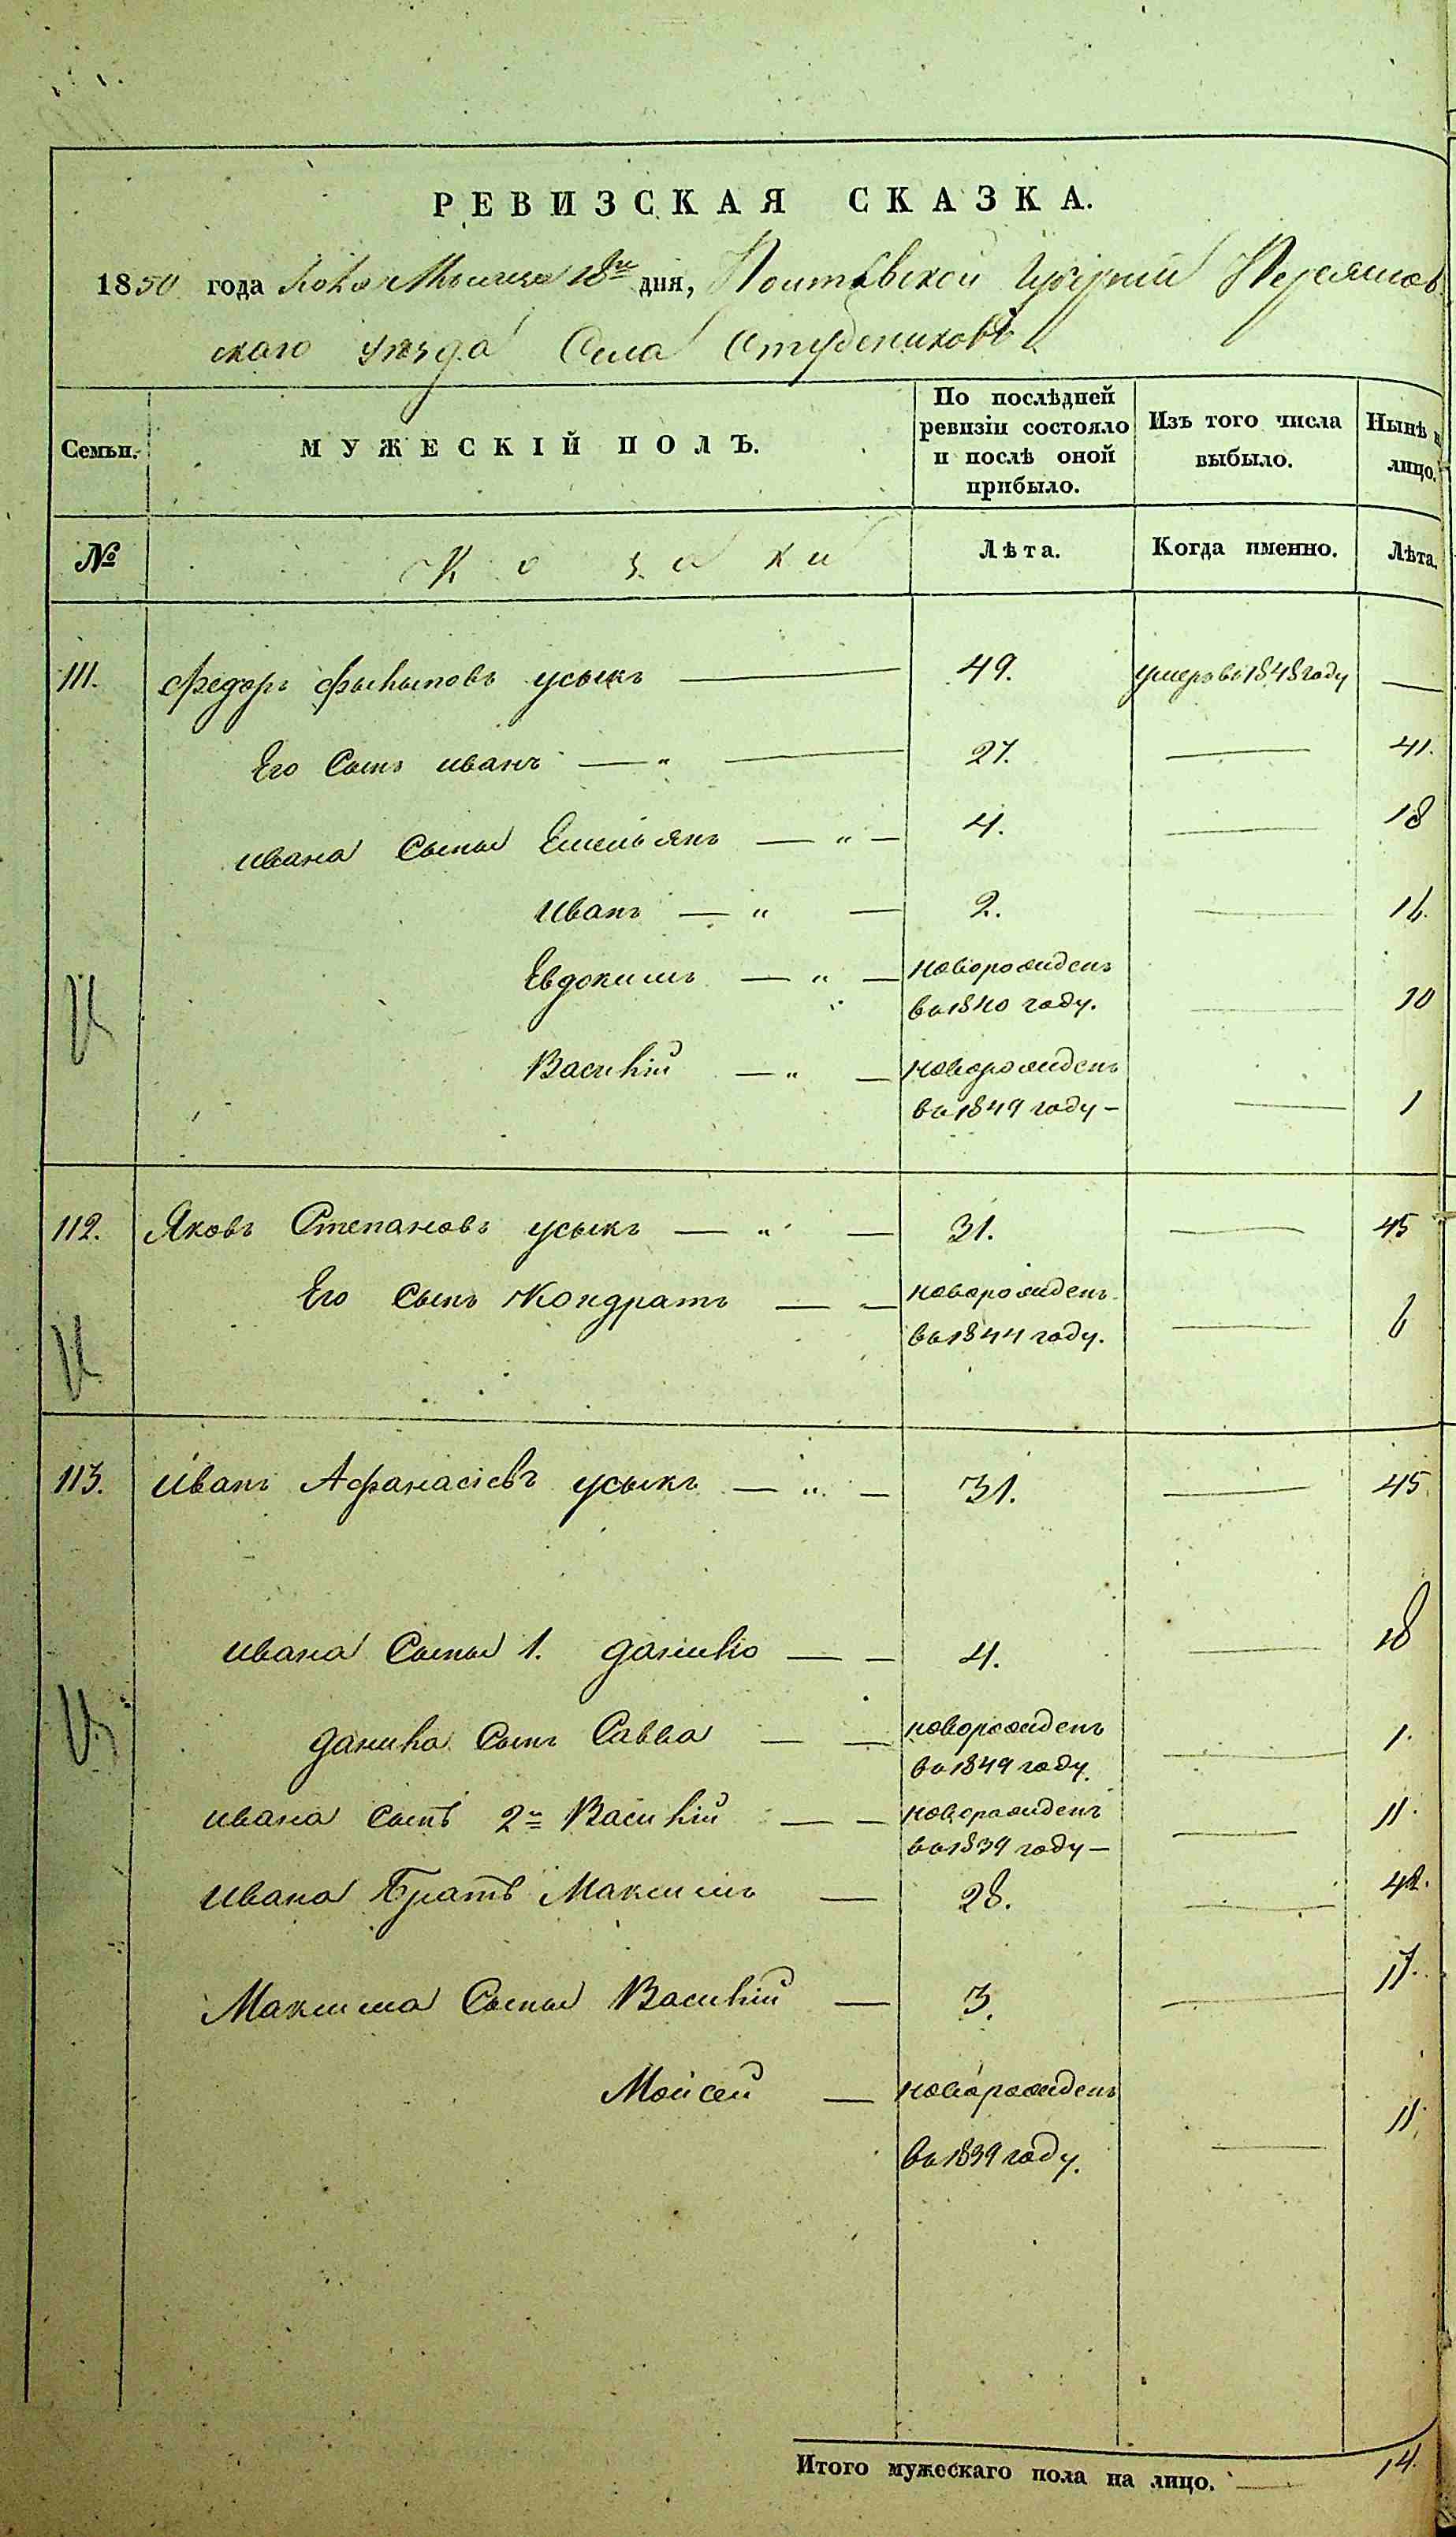 РЕВИЗСКАЯ СКАЗКА.
1850 года Мѣсяца 18го дня, Полтавской Губерніи Переяслов
скаго уѣзда Села Студениковъ
Семьи.
МУЖЕСКІЙ ПОЛЪ.
По послѣдней ревизіи состояло и послѣ оной прибыло.
Изъ того числа выбыло.
Нынѣ н лицо.
№
Козаки
Лѣта.
Когда именно.
Лѣта.
111. Федоръ Филиповъ усыкъ — 49. умеръ въ 1848 году —
Его Сынъ иванъ — " — 27. — 41.
ивана Сыны Емельянъ — " — 4. — 18
Иванъ — " — 2. — 16.
Евдокимъ — " — новорожденъ
въ 1840 году. — 10
Василій — " — новорожденъ
въ 1849 году — — 1
112. Яковъ Степановъ усыкъ — " — 31. — 45
Его Сынъ Кондратъ — — новорожденъ
въ 1844 году. — 6
113. Иванъ Афанасіевъ усыкъ — " — 31. — 45
ивана Сыны 1. данило — — 4. — 18
данила Сынъ Савва — — новорожденъ
въ 1849 году. — 1.
ивана сынъ 2й Василій — — новорожденъ
въ 1839 году — — 11.
Ивана Братъ Максимъ — 28. — 42.
Максима Сыны Василій — 3. — 17.
Мойсей — новорожденъ
въ 1839 году. — 11.
Итого мужескаго пола на лицо. — 14.